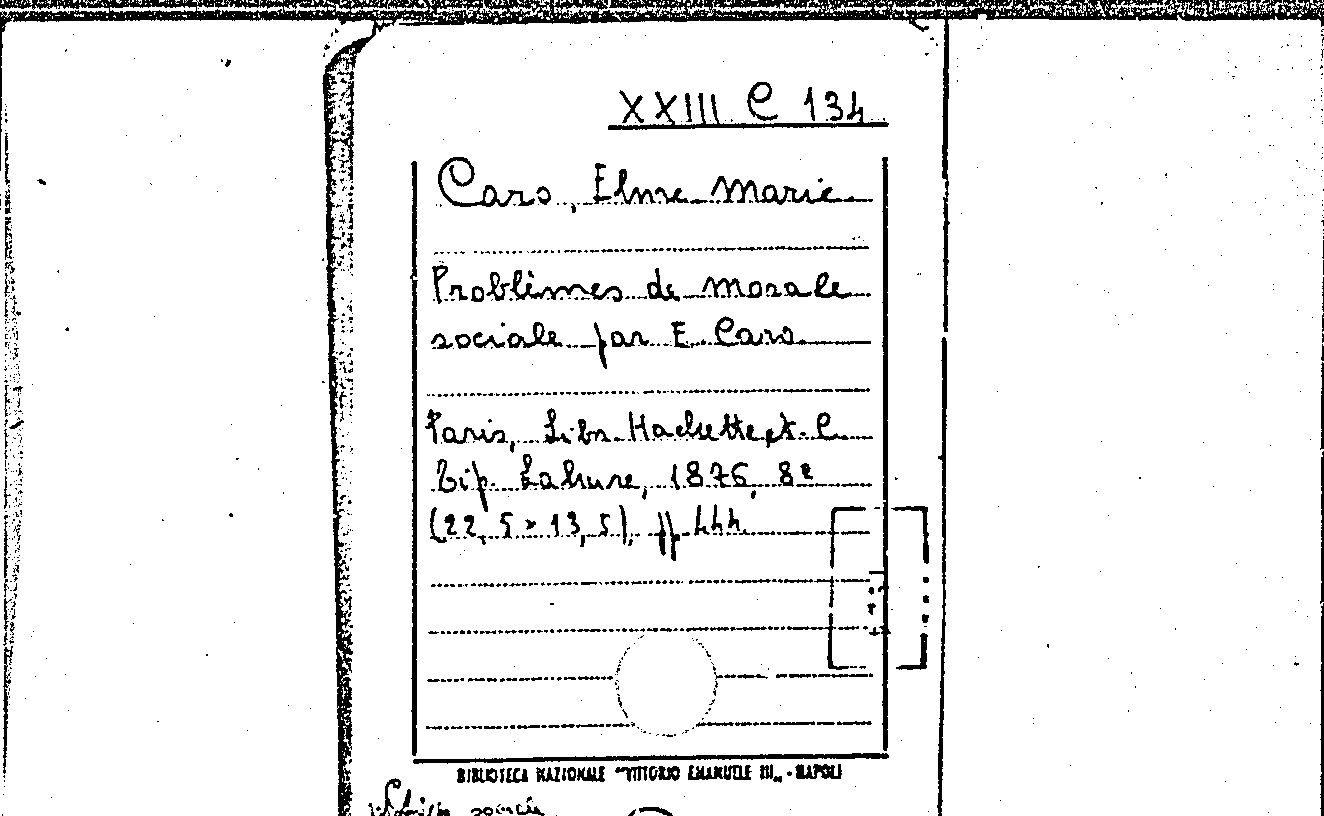 XXIII C 134
Caro, Elme Marie
Problèmes de morale
sociale par E. Caro.
Paris, Libr. Hachette et C.
Tip. Lahure, 1876, 8º
(22,5 × 13,5), pp. 444.
BIBLIOTECA NAZIONALE "VITTORIO EMANUELE III„ - NAPOLI